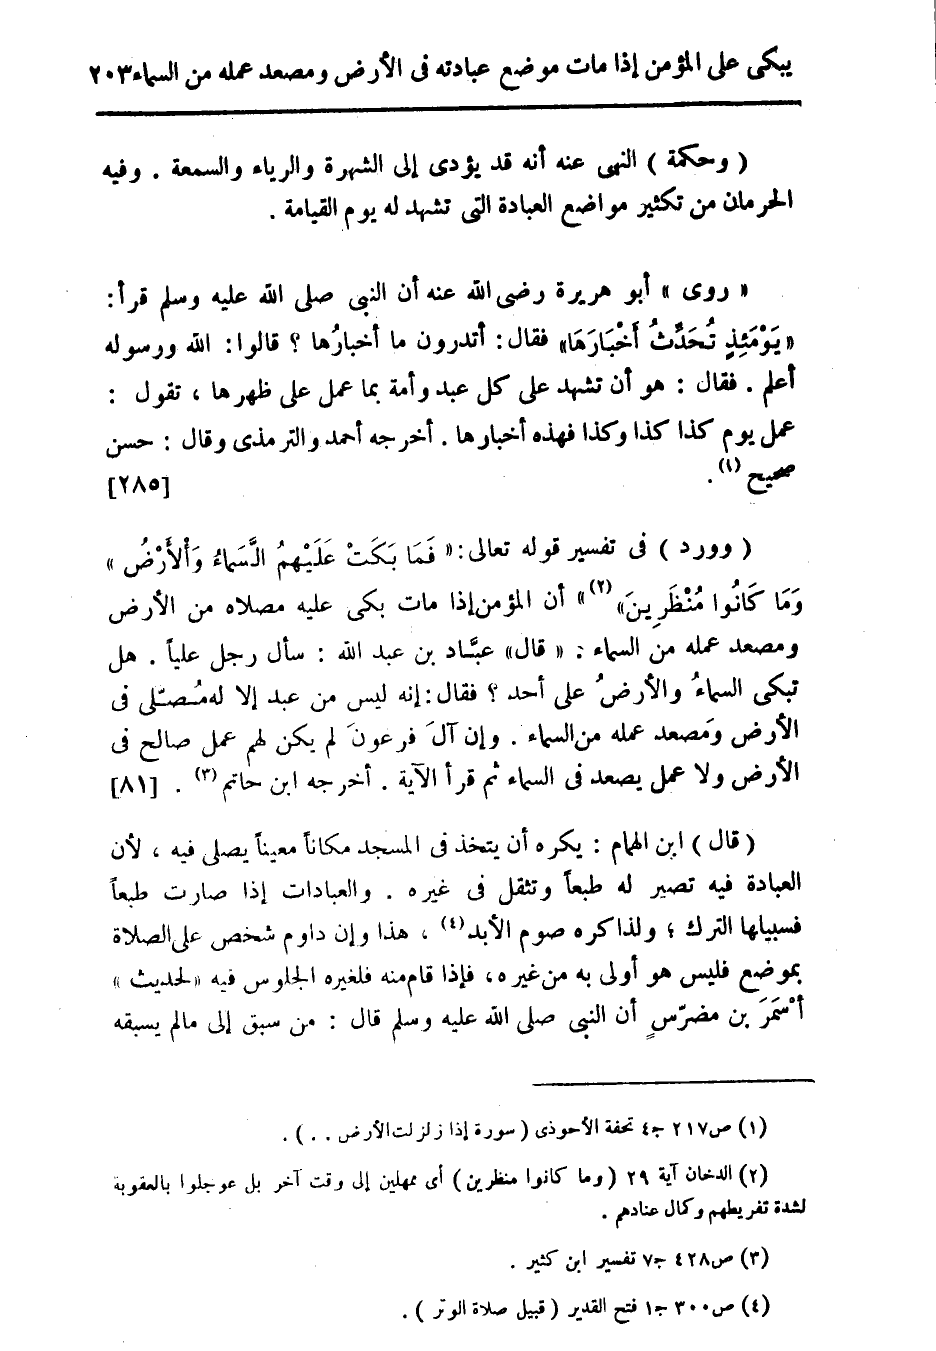 يبكى على المؤمن إذا مات موضع عبادته فى الأرض ومصعد عمله من السماء ٢٠٣
( وحكمة ) النهى عنه أنه قد يؤدى إلى الشهرة والرياء والسمعة . وفيه
الحرمان من تكثير مواضع العبادة التى تشهد له يوم القيامة .
« روى » أبو هريرة رضى الله عنه أن النبى صلى الله عليه وسلم قرأ :
«يَوْمَئِذٍ تُحَدِّثُ أَخْبَارَهَا» فقال : أتدرون ما أخبارُها ؟ قالوا : الله ورسوله
أعلم . فقال : هو أن تشهد على كل عبد وأمة بما عمل على ظهرها ، تقول :
عمل يوم كذا كذا وكذا فهذه أخبارها . أخرجه أحمد والترمذى وقال : حسن
صحيح (١) . [٢٨٥]
( وورد ) فى تفسير قوله تعالى : « فَمَا بَكَتْ عَلَيْهِمُ السَّمَاءُ وَالْأَرْضُ »
وَمَا كَانُوا مُنْظَرِينَ» (٢) » أن المؤمن إذا مات بكى عليه مصلاه من الأرض
ومصعد عمله من السماء : « قال» عبَّاد بن عبد الله : سأل رجل علياً . هل
تبكى السماءُ والأرضُ على أحد ؟ فقال : إنه ليس من عبد إلا له مُصَلّى فى
الأرض ومَصعد عمله من السماء . وإن آلَ فرعونَ لم يكن لهم عمل صالح فى
الأرض ولا عمل يصعد فى السماء ثم قرأ الآية . أخرجه ابن حاتم (٣) . [٨١]
( قال ) ابن الهمام : يكره أن يتخذ فى المسجد مكاناً معيناً يصلى فيه ، لأن
العبادة فيه تصير له طبعاً وتثقل فى غيره . والعبادات إذا صارت طبعاً
فسبيلها الترك ؛ ولذا كره صوم الأبد (٤) ، هذا وإن داوم شخص على الصلاة
بموضع فليس هو أولى به من غيره ، فإذا قام منه فلغيره الجلوس فيه «لحديث »
أسْمَرَ بن مضرّسٍ أن النبى صلى الله عليه وسلم قال : من سبق إلى مالم يسبقه
(١) ص ٢١٧ ج ٤ تحفة الأحوذى ( سورة إذا زلزلت الأرض . . ) .
(٢) الدخان آية ٢٩ ( وما كانوا منظرين ) أى ممهلين إلى وقت آخر بل عوجلوا بالعقوبة
لشدة تفريطهم وكمال عنادهم .
(٣) ص ٤٢٨ ج ٧ تفسير ابن كثير .
(٤) ص ٣٠٠ ج ١ فتح القدير ( قبيل صلاة الوتر ) .